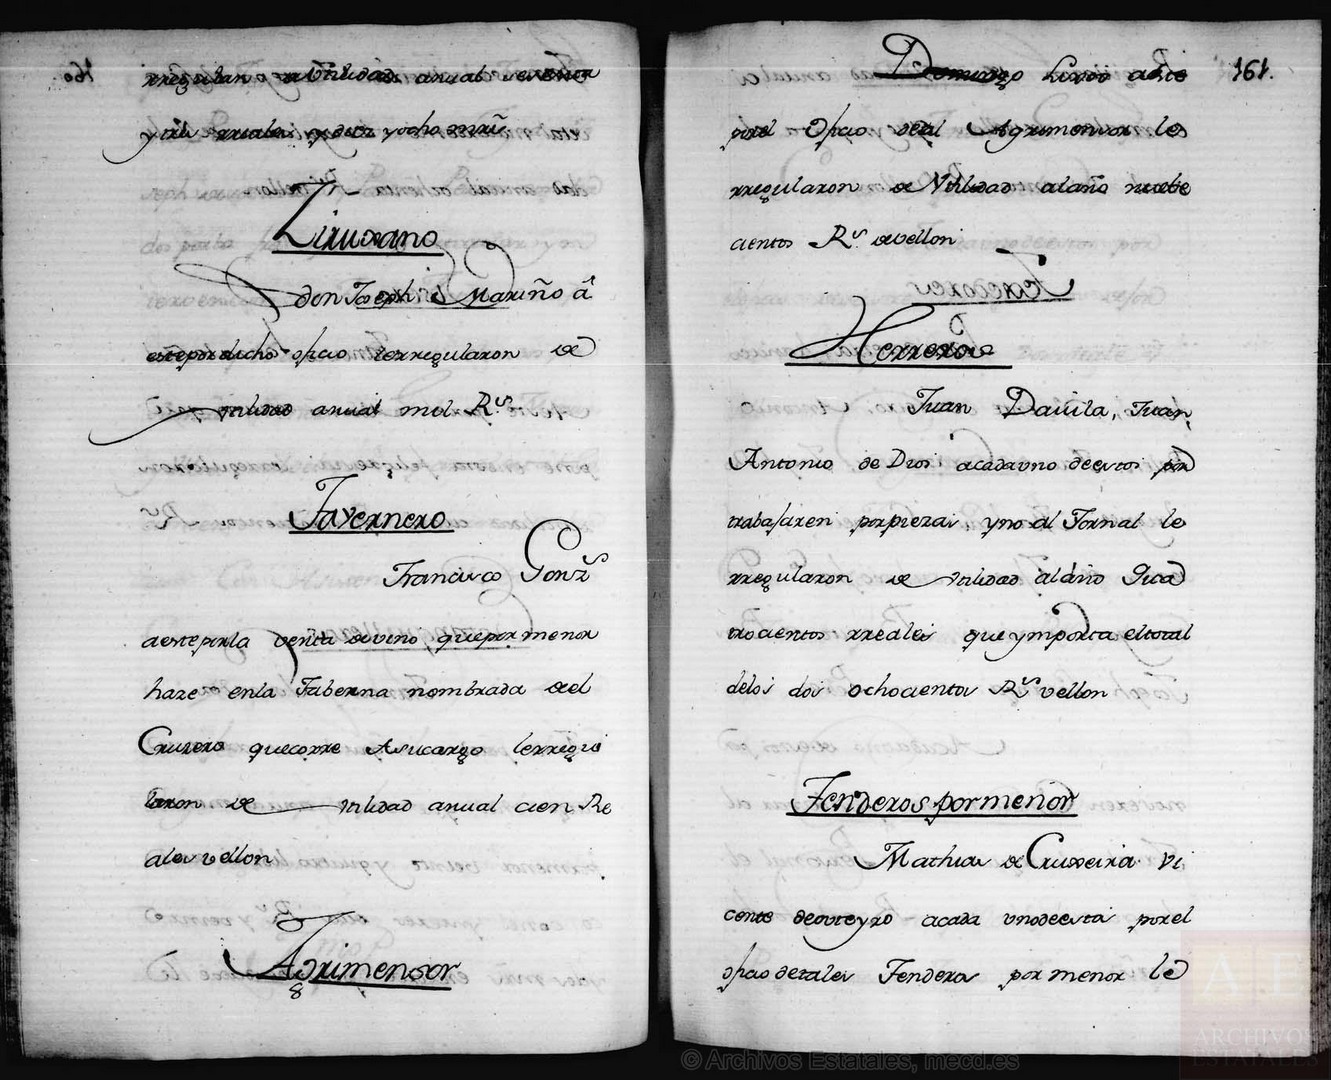 rregulan de Utilidad anual sesenta
y tres reales y diez y ocho mrs̃
Zirujano
don Joseph Mariño á
este por dicho oficio le rregularon de
utilidad anual mil R.s
Tavernero
Francisco Gonz
a este por la venta de vino, que por menor
haze en la Taberna nombrada del
Cruzero que corre A su cargo le rregu
laron de utilidad anual cien Re
ales vellon
Agrimensor
8
161.
Domingo a este
por el Oficio de tal Agrimensor le
rregularon de Vtilidad al año nuebe
cientos R.s de vellon
Herreros
Juan Dauila, Juan
Antonio de Dios a cada uno de estos por
trabajaren por piezas, y no al Jornal le
rregularon de utilidad al año Qua
trocientos rreales que ymporta el total
de los dos ochocientos R.s vellon
Tenderos por menor
Mathias de Cruxeira Vi
cente de outeyro a cada uno de estos por el
oficio de tales Tenderos por menor le
© Archivos Estatales, mecd.es
A.E
ARCHIVOS
ESTATALES